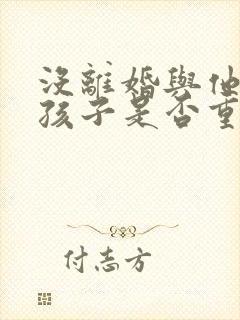 沒離婚與他
孩子是否重
付志方